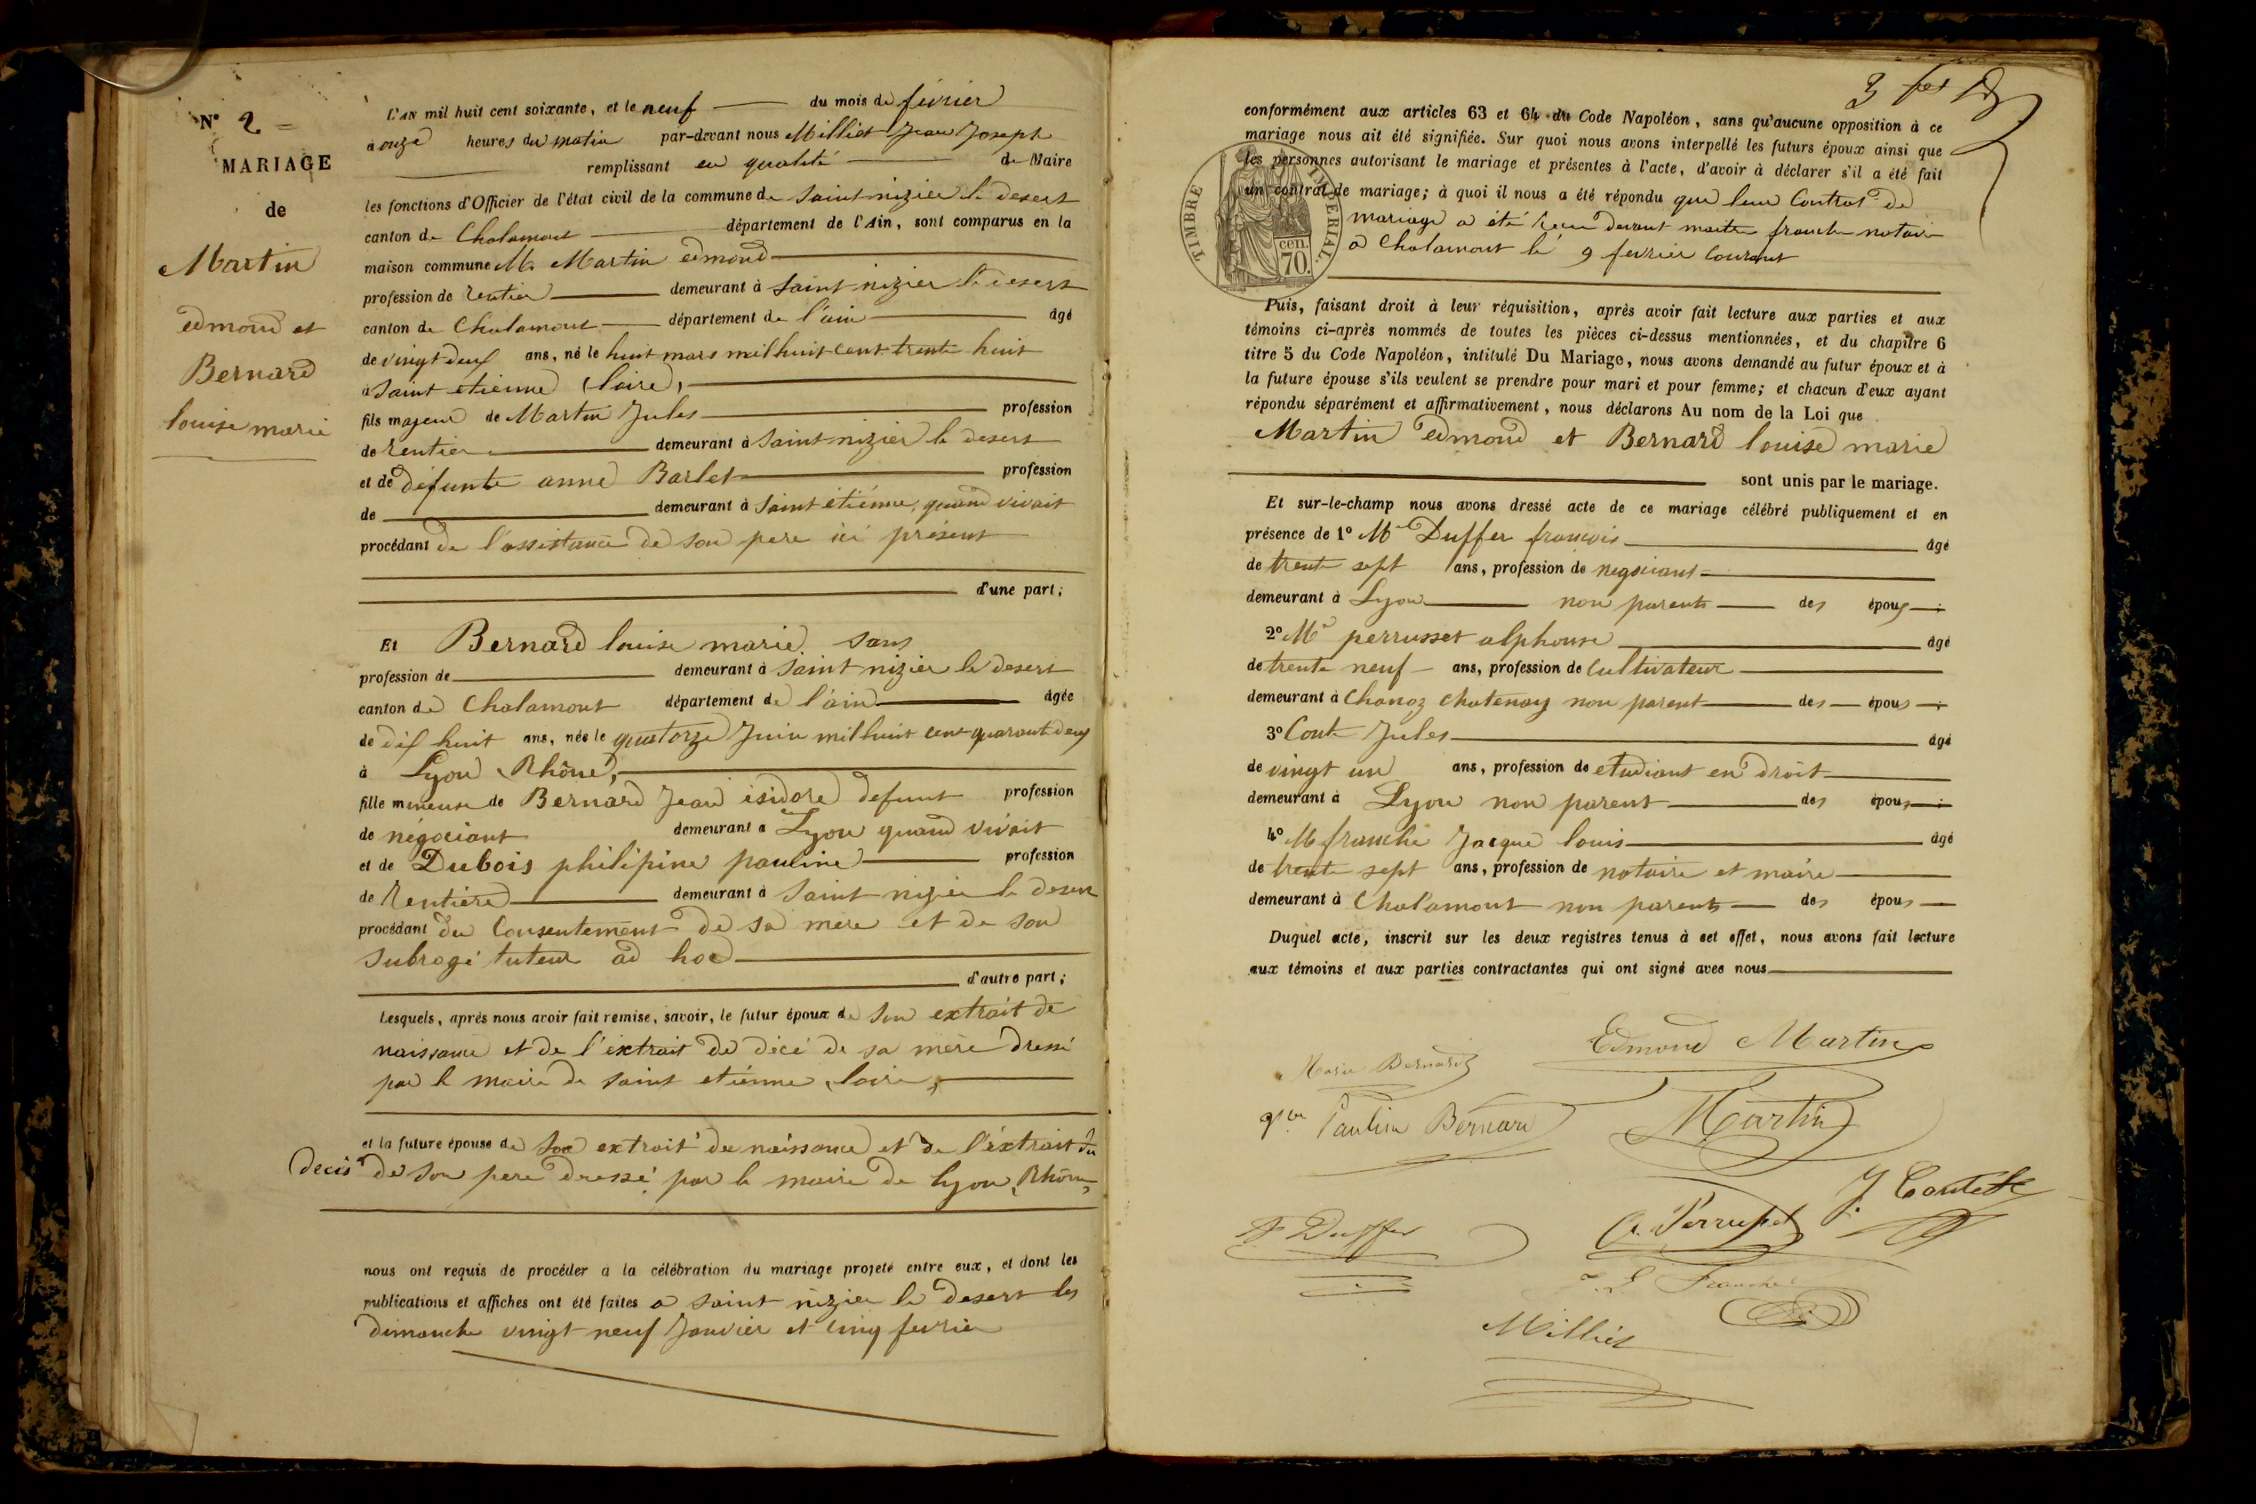 N° 2
MARIAGE
de
Martin
edmond et
Bernard
louise marie
L'AN mil huit cent soixante, et le neuf du mois de février
à onze heures du matin par-devant nous Milliet Jean Joseph
remplissant en qualité de Maire
les fonctions d'Officier de l'état civil de la commune de Saint nizier le desert
canton de Chalamont département de l'Ain, sont comparus en la
maison commune M. Martin edmond
profession de rentier demeurant à Saint nizier le desert
canton de Chalamont département de l'ain âgé
de vingt deux ans, né le huit mars mil huit cent trente huit
à Saint etienne (loire)
fils majeur de Martin Jules profession
de rentier demeurant à Saint nizier le desert
et de défunte anne Barlet profession
de demeurant à Saint étiénne, quand vivait
procédant de l'assistance de son pere ici présent
d'une part;
Et Bernard louise marie sans
profession de demeurant à Saint nizier le desert
canton de Chalamont département de l'ain âgée
de dix huit ans, née le quatorze Juin mil huit cent quarante deux
à Lyon (Rhône)
fille mineure de Bernard Jean isidore defunt profession
de négociant demeurant à Lyon quand vivait
et de Dubois philipine pauline profession
de Rentière demeurant à Saint nizier le desert
procédant du Consentement de sa mère et de son
subrogé tuteur ad hoc
d'autre part;
Lesquels, après nous avoir fait remise, savoir, le futur époux de son extrait de
naissance et de l'éxtrait de décé de sa mère dressé
par le maire de saint etiénne (loire)
et la future épouse de son extrait de naissance et de l'éxtrait du
decès de son pere dressé par le maire de lyon (Rhône)
nous ont requis de procéder à la célébration du mariage projeté entre eux, et dont les
publications et affiches ont été faites a saint nizier le desert les
dimanche vingt neuf Janvier et cinq fevrier
conformément aux articles 63 et 64 du Code Napoléon, sans qu'aucune opposition à ce
mariage nous ait été signifiée. Sur quoi nous avons interpellé les futurs époux ainsi que
les personnes autorisant le mariage et présentes à l'acte, d'avoir à déclarer s'il a été fait
un contrat de mariage; à quoi il nous a été répondu que leur Contrat de
mariage a été recu devant maitre franche notaire
a Chalamont le 9 fevrier Courant
TIMBRE IMPERIAL.
cen.
70.
Puis, faisant droit à leur réquisition, après avoir fait lecture aux parties et aux
témoins ci-après nommés de toutes les pièces ci-dessus mentionnées, et du chapitre 6
titre 5 du Code Napoléon, intitulé Du Mariage, nous avons demandé au futur époux et à
la future épouse s'ils veulent se prendre pour mari et pour femme; et chacun d'eux ayant
répondu séparément et affirmativement, nous déclarons Au nom de la Loi que
Martin edmond et Bernard louise marie
sont unis par le mariage.
Et sur-le-champ nous avons dressé acte de ce mariage célébré publiquement et en
présence de 1° Mr Duffer francois âgé
de trente sept ans, profession de negociant
demeurant à Lyon non parent des époux;
2° Mr perrusset alphonse âgé
de trente neuf ans, profession de Cultivateur
demeurant à Chanoz chatenay non parent des époux;
3° Conte Jules âgé
de vingt un ans, profession de etudiant en droit
demeurant à Lyon non parent des époux;
4° M franche Jacque louis âgé
de trente sept ans, profession de notaire et maire
demeurant à Chalamont non parent des époux
Duquel acte, inscrit sur les deux registres tenus à cet effet, nous avons fait lecture
aux témoins et aux parties contractantes qui ont signé avec nous
Edmond Martin
Marie Bernard
Pauline Bernard
Martin
J. Contet
F Duffer
A. Perrusset
L Franche
Milliet